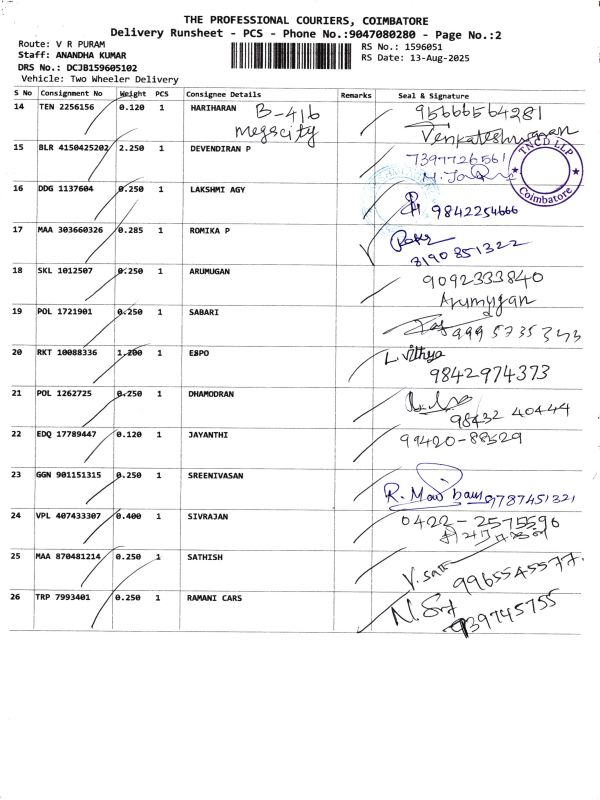 THE PROFESSIONAL COURIERS, COIMBATORE
Delivery Runsheet - PCS - Phone No.:9047080280 - Page No.:2
Route: V R PURAM
RS No.: 1596051
Staff: ANANDHA KUMAR
RS Date: 13-Aug-2025
DRS No.: DCJB159605102
Vehicle: Two Wheeler Delivery
S No Consignment No Weight PCS Consignee Details Remarks Seal & Signature
14 TEN 2256156 0.120 1 HARIHARAN B-416 95666564281
megacity Venkateshnggan
15 BLR 4150425202 2.250 1 DEVENDIRAN P 7397726561
TNCD LLP
Coimbatore
16 DDG 1137604 0.250 1 LAKSHMI AGY 9842254666
17 MAA 303660326 0.285 1 ROMIKA P
8190851322
18 SKL 1012507 0.250 1 ARUMUGAN 9092333840
Arumugan
19 POL 1721901 0.250 1 SABARI
9995735343
20 RKT 10088336 1.200 1 ESPO L. Vithya
9842974373
21 POL 1262725 0.250 1 DHAMODRAN
98432 40444
22 EDQ 17789447 0.120 1 JAYANTHI 99420-88529
23 GGN 901151315 0.250 1 SREENIVASAN
9787451321
24 VPL 407433307 0.400 1 SIVRAJAN 0422-2575596
25 MAA 870481214 0.250 1 SATHISH
9965545577.
26 TRP 7993401 0.250 1 RAMANI CARS
939745755